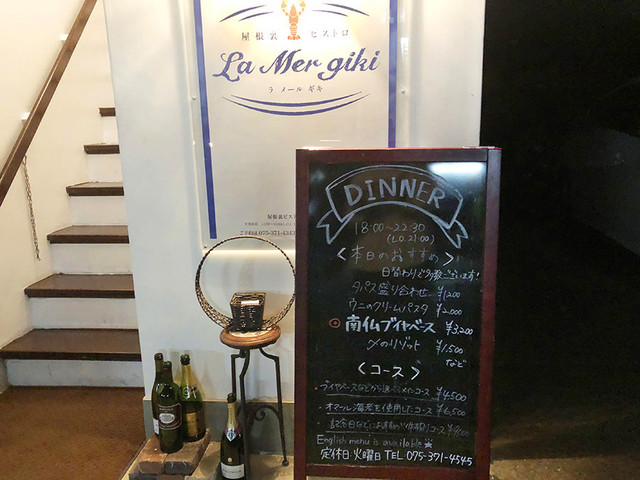 屋根裏 ビストロ
La Mer giki
ラ メール ギキ
屋根裏ビスト
075-371-4545
DINNER
18:00~22:30
(L.O. 21:00)
<本日のおすすめ>
日替わり多数ございます!
タパス盛り合わせ ¥1,200
ウニのクリームパスタ ¥2,000
南仏ブイヤベース ¥3,200
〆のリゾット ¥1,500
など
<コース>
・ブイヤベースなどから選べるメインコース ¥4,500
・オマール海老を使用したコース ¥6,500
・記念日などに コース
English menu is available
定休日:火曜日 TEL 075-371-4545